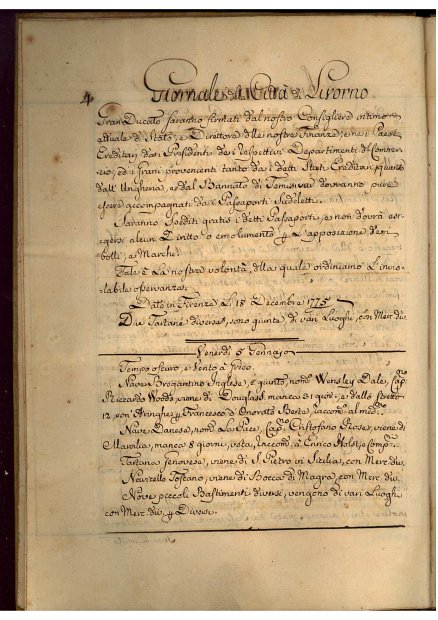 4 Giornale di Città di Livorno
Gran Ducato saranno firmati dal nostro Consigliere intimo
attuale di Stato, e Direttore delle nostre Finanze, e ne i Paesi
Ereditarj dai Presidenti de i respettivi Dipartimenti di Commer-
cio, ed i grani provenienti tanto da i detti Stati Ereditarj, quanto
dall' Ungheria, e dal Bannato di Temisvar dovranno pure
essere accompagnati da i Passaporti suddetti.
Saranno spediti gratis i detti Passaporti, e non dovrà esi-
gersi alcun Diritto o emolumento p L'apposizione d'
bolli, e Marche.
Tale è La nostra volontà, della quale ordiniamo L'invio-
labile osservanza.
Dato in Firenze Li 18 Decembre 1775
Due Tartane diverse, sono giunte di varj Luoghi, con Merc. div.
Venerdì 5 Gennajo
Tempo oscuro, e Vento a Greco
Nave Brigantino Inglese, è giunto, nom. Wensley Dale, Cap.
Riccardo Woods, viene di Douglass manca 31 giorni, e dallo stretto
12, con Aringhe p Francesco d' Onorato Berte, raccom. al med.
Nave Danese, nom. La Pace, Cap. Cristofano Ploser, viene di
Marsilia, manca 8 giorni, vota, raccom. à Enrico Holst, e Comp.
Tartana Genovese, viene di S. Pietro in Sicilia, con Merc. div.
Navicello Toscano, viene di Bocca di Magra, con Merc. div.
Nove piccoli Bastimenti diversi, vengono di varj Luoghi
con Merc. div. p Diversi.